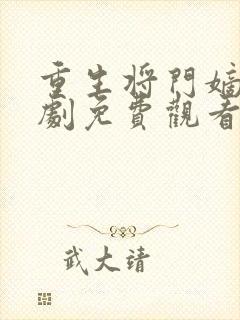 重生将門嫡
劇免費觀看
武大靖